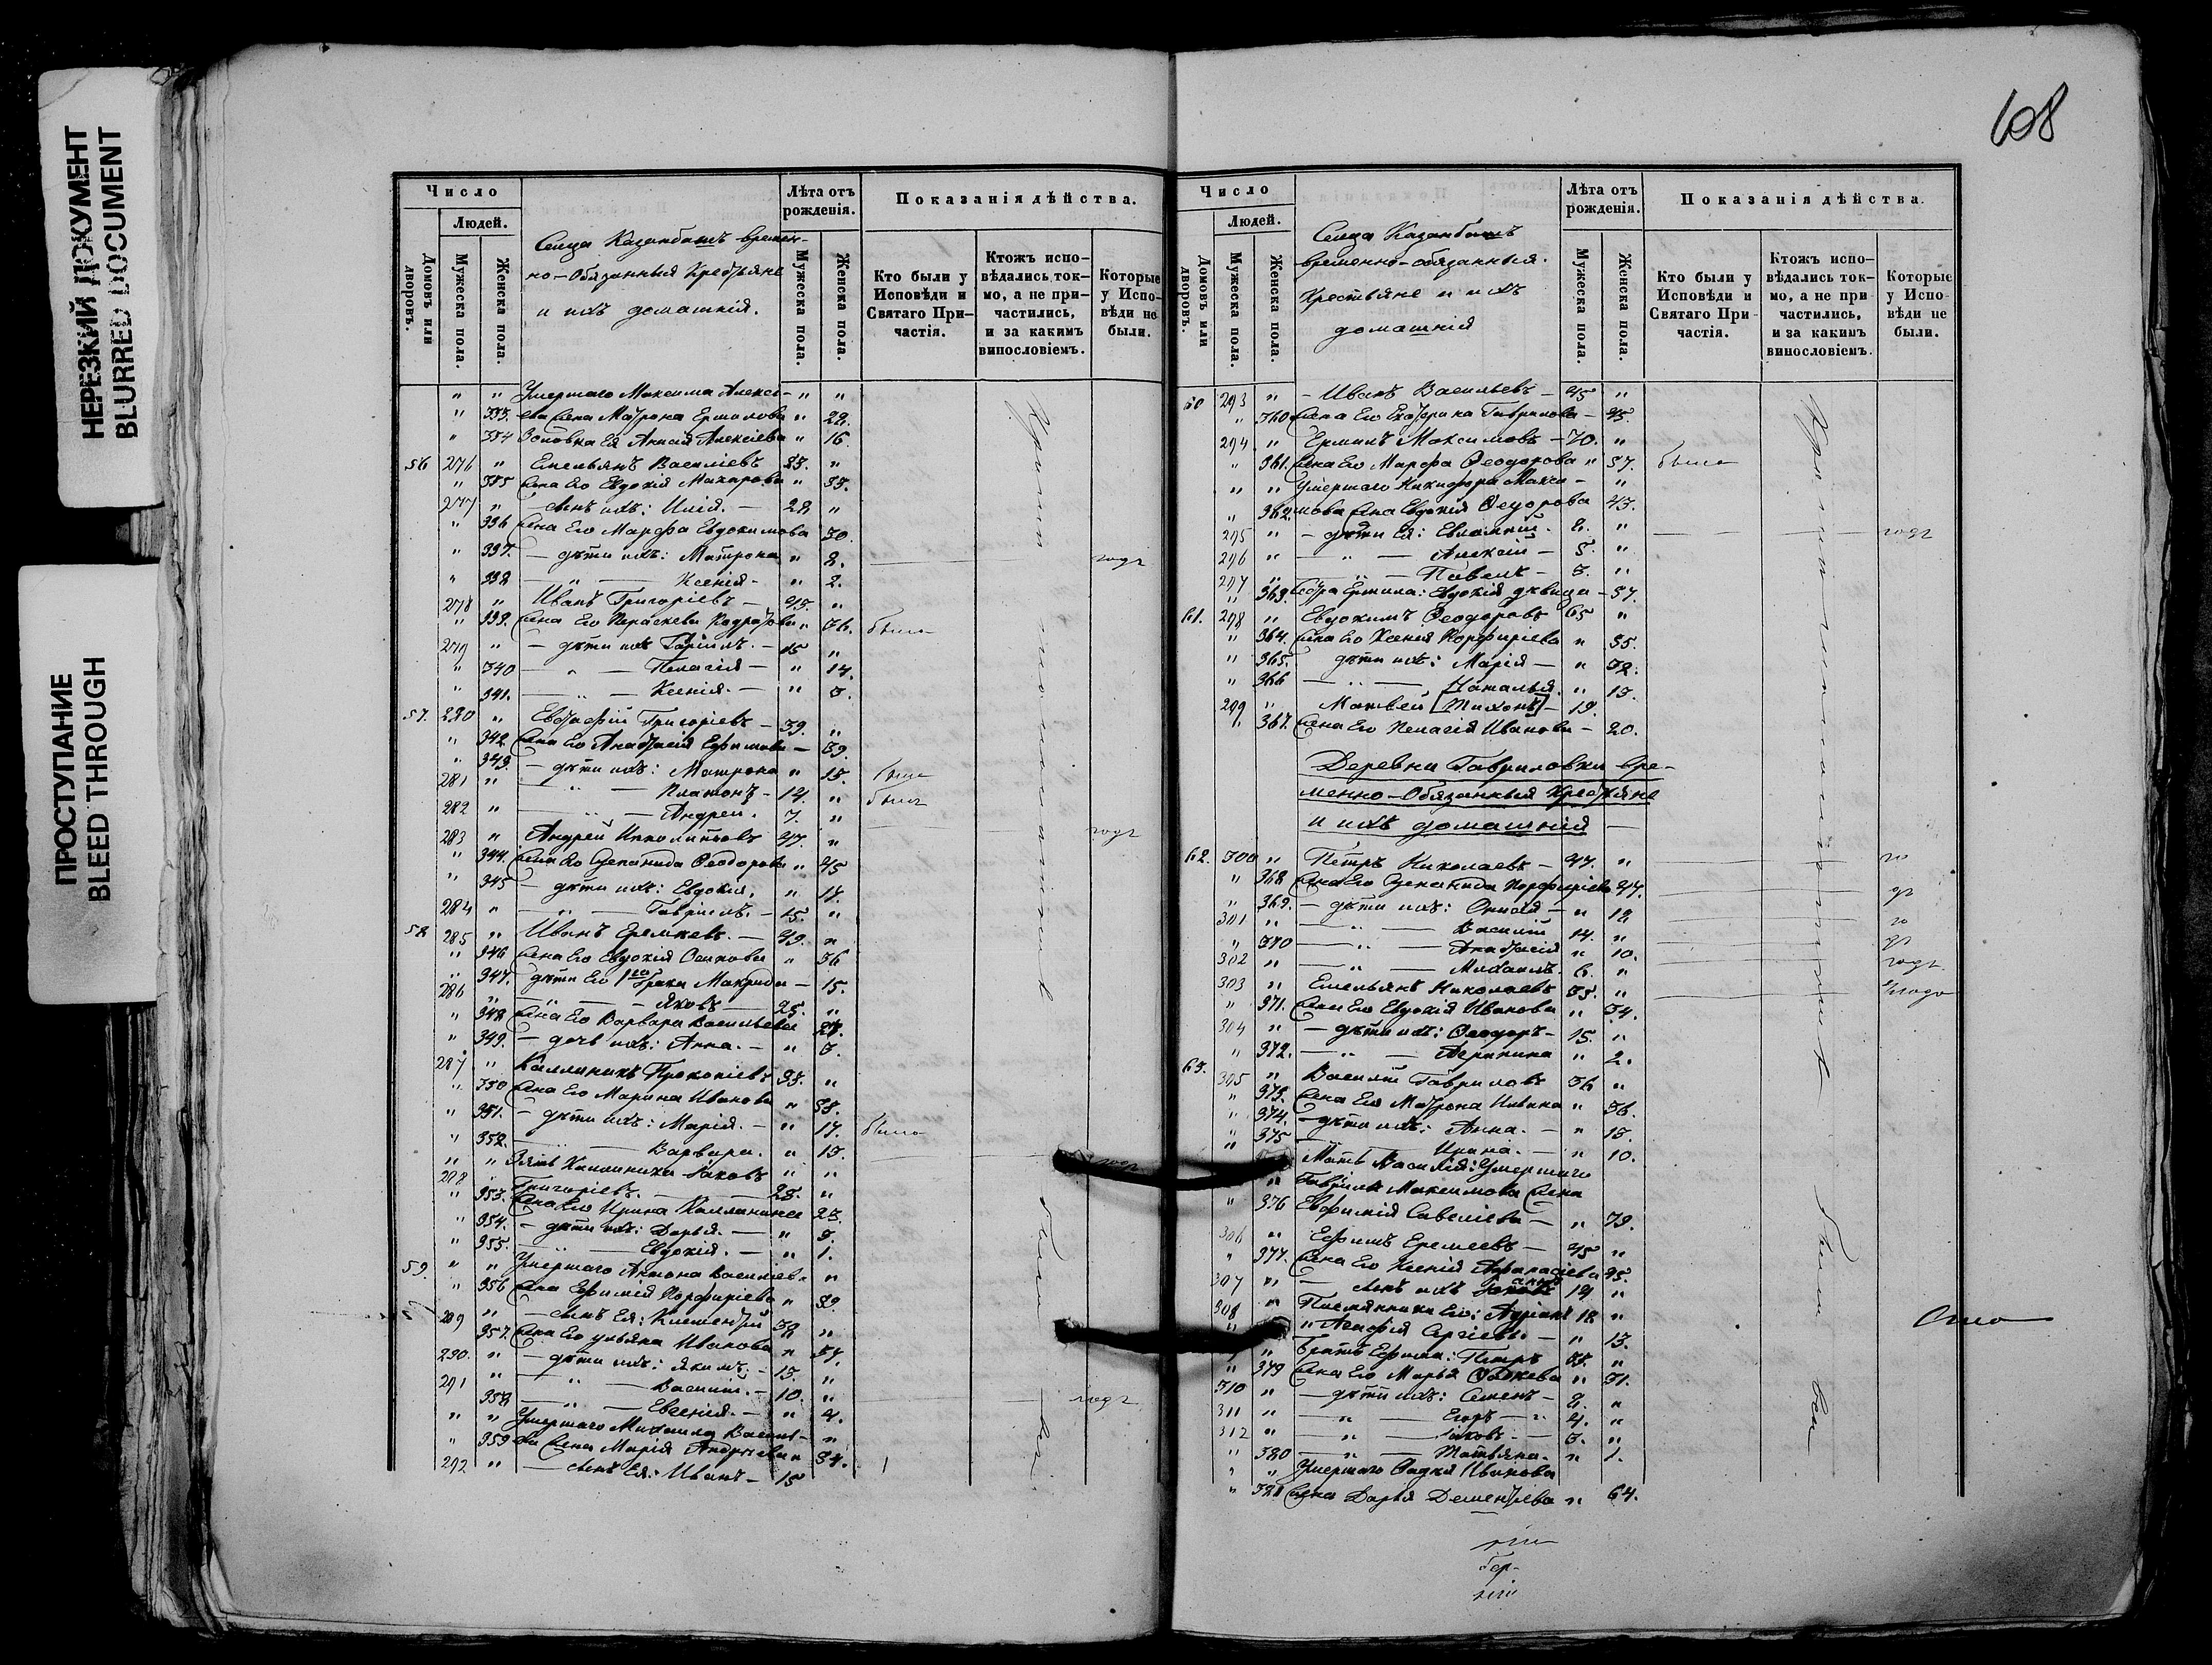 НЕРЕЗКИЙ ДОКУМЕНТ
BLURRED DOCUMENT
ПРОСТУПАНИЕ
BLEED THROUGH
Число
Людей.
Домовъ или дворовъ.
Мужеска пола.
Женска пола.
Сельца Казанбашъ времен-
но-Обязанныя Крестьяне
и ихъ домашнія.
Лѣта отъ рожденія.
Мужеска пола.
Женска пола.
Показанія дѣйства.
Кто были у Исповѣди и Святаго При-частія.
Ктожъ испо-вѣдались ток-мо, а не при-частились, и за какимъ винословіемъ.
Которые у Испо-вѣди не были.
" " Умершаго Максима Алексі- " "
" 333. ева жена Матрона Ермилова " 22.
" 334 Золовка Ея Анисія Алексіева " 16.
56 276 " Емельянъ Василіевъ 55. "
" 335 жена Его Евдокія Макарова " 55.
277 " – сынъ ихъ: Илія. – 28 "
" 336 жена Его Марѳа Евдокимова 30.
" 337. – дѣти ихъ: Матрона " 8. годъ
" 338 – " – Ксенія – " 2.
278 " Иванъ Григоріевъ – 43. "
" 339. жена Его Параскева Кодратова " 36. была
279 " – дѣти ихъ Гавріилъ. – 15 "
" 340 – " – Пелагія – " 14.
" 341. – " – Ксенія. – " 3.
57. 280 " Евстафій Григоріевъ – 39. "
" 342 жена Его Анастасія Ефимова – 39.
" 343. – дѣти ихъ: Матрона " 15. была
281 " – " – Платонъ – 14. " былъ
282 " – " – Андрей. 7. "
283 " Андрей Ипполитовъ 47. " годъ
" 344. жена Его Степанида Ѳеодорова " 45
" 345 – дѣти ихъ: Евдокія, " 17.
284 " – " – Гавріилъ. – 15. "
58 285 " Иванъ Еремѣевъ. – 49. "
" 346 жена Его Евдокія Осипова " 36
" 347. дѣти Его 1го брака Макрида – 15.
286 " – " – Яковъ – 25. "
" 348 жена Его Варвара Васильева 27.
" 349. – дочь ихъ: Анна. – " 3.
287 " Каллиникъ Прокопіевъ 53. "
" 350 жена Его Марина Иванова " 53.
" 351. – дѣти ихъ: Марія. – " 17. была
" 352. – " – Варвара. " 13.
" " Зять Калиника Іаковъ " " годъ
288 " Григоріевъ. – 25. "
" 353. жена Его Ирина Каллиник 23.
" 354. – дѣти ихъ: Дарья. – " 3.
" 355. – " – Евдокія. – " 1.
59. " " Умершаго Антона Василіев- "
" 356 жена Ефимія Порфиріева " 59.
289 " – сынъ Ея: Климентій 38 "
" 357. жена Его Ульяна Иванова " 37.
290. " – дѣти ихъ: Якимъ. – 13. "
291 " – " – Василій. – 10. "
358 – " – Евгенія. – " 4. годъ
" " Умершаго Михаила Васил- "
" 359 ва жена Марія Андреева " 34.
292 " – сынъ Ея: Иванъ – 15
108
Число
Людей.
Домовъ или дворовъ.
Мужеска пола.
Женска пола.
Сельца Казанбашъ
временно-обязанныя.
Крестьяне и ихъ
домашнія
Лѣта отъ рожденія.
Мужеска пола.
Женска пола.
Показанія дѣйства.
Кто были у Исповѣди и Святаго При-частія.
Ктожъ испо-вѣдались ток-мо, а не при-частились, и за какимъ винословіемъ.
Которые у Испо-вѣди не были.
60 293 " – Иванъ Васильевъ – 45 "
" 360 жена Его Екатерина Гаврилова – 45.
294 " Ермилъ Максимовъ – 70. "
" 361. жена Его Марѳа Ѳеодорова " 57. была
" " Умершаго Никифора Макси- – "
" 362. мова жена Евдокія Ѳеодорова 43.
295 " – дѣти Ея: Евлампій. 8. " годъ
296 " – " – Алексій – 5. "
297 " – " – Павелъ – 3. "
" 363. Сестра Ермила: Евдокія дѣвица – 57.
61. 298 " Евдокимъ Ѳеодоровъ 65 "
" 364. жена Его Ксенія Порфиріева " 55.
" 365. дѣти ихъ: Марія – " 32.
" 366 – " – Наталья. " 13.
299 " Матвей [Тихонъ] – 19.
" 367. жена Его Пелагія Иванова – 20.
Деревни Гавриловки вре-
менно-Обязанныя Крестьяне
и ихъ домашнія
62. 300 " Петръ Николаевъ – 47. " го
" 368 жена Его Степанида Порфиріева 47. дъ
" 369. – дѣти ихъ: – " 18. го
301 " – " – Василій 14. " дъ
" 370 – " – Анастасія " 10.
302 " – " – Михаилъ. 6. " годъ
303 " Емельянъ Николаевъ 35. "
" 371. жена Его Евдокія Иванова " 34.
304 " – дѣти ихъ: Ѳеодоръ – 15. "
" 372. – " – Агрипина " 2.
63. 305 " Василій Гавриловъ 36 "
" 373. жена Его Матрона " 36.
" 374. – дѣти ихъ: Анна. – " 13.
" 375 – " – Ирина. – " 10.
" Мать Василія: Умершаго
" Гавріила Максимова жена
" 376 Евфимія Савеліева – " 79.
306 " Ефимъ Еремеевъ – 45 "
" 377. жена Его Ксенія Афанасіева 45.
307 " – сынъ ихъ 19 "
308 " Племянники Его: Адріанъ 18 "
" " Агафія Сергіева – " 13.
" Братъ Ефима: Петръ 35. "
" 379 жена Его Марья " 31.
310 " – дѣти ихъ: Семенъ – 8. "
311 " – " – Егоръ – 4. "
312 " – " – Іаковъ – 3. "
" 380 – " – Татьяна. " 1.
" " Умершаго Фадѣя Иванова
" 381 жена Дарья Дементьева " 64.